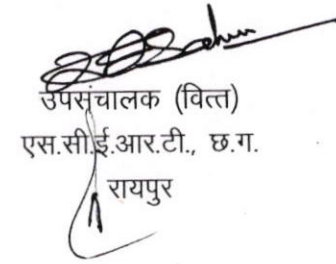 उपसंचालक (वित्त)
एस.सी.ई.आर.टी., छ.ग.
रायपुर